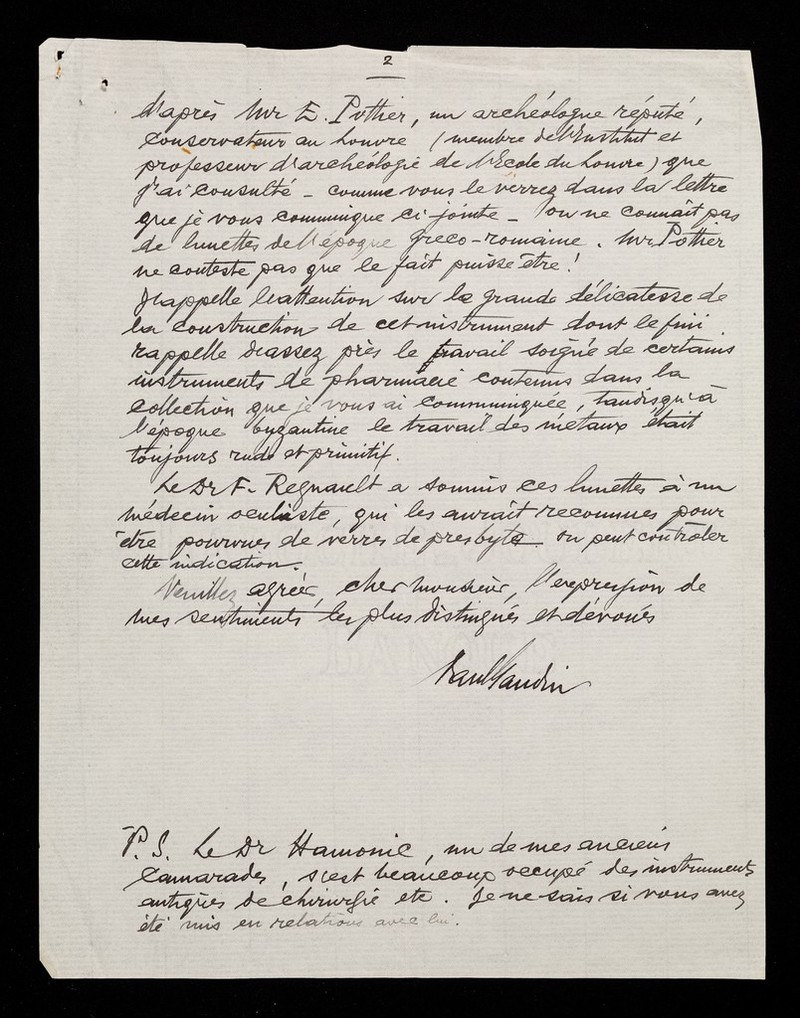 2
d'après Mr E. Pottier, un archéologue réputé,
conservateur au Louvre (membre de l'Institut et
professeur d'archéologie de l'Ecole du Louvre) que
j'ai consulté _ comme vous le verrez dans la lettre
que je vous communique ci-jointe _ on ne connaît pas
de lunettes de l'époque greco-romaine. Mr Pottier
ne conteste pas que le fait puisse être!
J'appelle l'attention sur la grande délicatesse de
la construction de cet instrument dont le fini
rappelle d'assez près le travail soigné de certains
instruments de pharmacie contenus dans la
collection que je vous ai communiquée, tandis qu'à
l'époque byzantine le travail des métaux était
toujours rude et primitif.
Le Dr F. Regnault a soumis ces lunettes à un
médecin oculiste, qui les aurait reconnues pour
être pourvues de verres de presbyte. On peut contrôler
cette indication.
Veuillez agréer, cher Monsieur, l'expression de
mes sentiments les plus distingués et dévoués
Paul Gaudin
P. S. Le Dr Hamonic, un de mes anciens
camarades, s'est beaucoup occupé des instruments
antiques de chirurgie etc. Je ne sais si vous avez
été mis en relations avec lui.